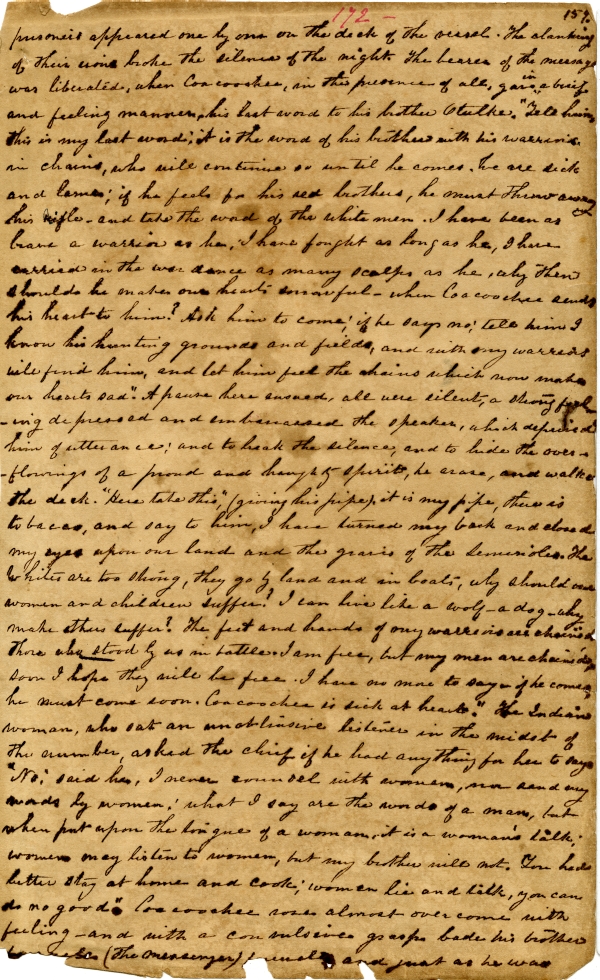 172 - 157.
prisoners appeared one by one on the deck of the vessel. The clanking
of their irons broke the silence of the night. The bearer of the message
was liberated, when Coacoochee, in the presence of all, gave, in a brief
and feeling manner, his last word to his brother Otulke. "Tell him,
this is my last word; it is the word of his brother with his warriors
in chains, who will continue so until he comes. We are sick
and lame; if he feels for his red brothers, he must throw away
his rifle - and take the word of the white men. I have been as
brave a warrior as he, I have fought as long as he, I have
carried in the war dance as many scalps as he, why then
should he make our hearts sorrowful - when Coacoochee sends
his heart to him? Ask him to come; if he says no; tell him I
know his hunting grounds and fields, and with my warriors
will find him, and let him feel the chains which now make
our hearts sad". A pause here ensued, all were silent, a strong feel-
-ing depressed and embarrassed the speaker, which deprived
him of utterance; and to break the silence, and to hide the over-
-flowings of a proud and haughty spirit, he arose, and walked
the deck. "Here take this," (giving his pipe) it is my pipe, there is
tobacco, and say to him, I have turned my back and closed
my eyes upon our land and the graves of the Semenoles. The
Whites are too strong, they go by land and in boats, why should our
women and children suffer? I can live like a wolf - a dog - why
make others suffer? The feet and hands of my warriors are chained
those who stood by us in battle. I am free, but my men are chained,
soon I hope they will be free. I have no more to say - if he comes,
he must come soon. Coacoochee is sick at heart." The Indian
woman, who sat an unobtrusive listener in the midst of
the number, asked the chief if he had anything for her to say.
"No," said he, I never counsel with women, nor send my
words by women; what I say are the words of a man, but
when put upon the tongue of a woman, it is a woman's talk;
women may listen to women, but my brother will not. You had
better stay at home and cook; women lie and talk, you can
do no good". Coacoochee rose almost overcome with
feeling - and with a convulsive grasp bade his brother
(the messenger) and just as he was